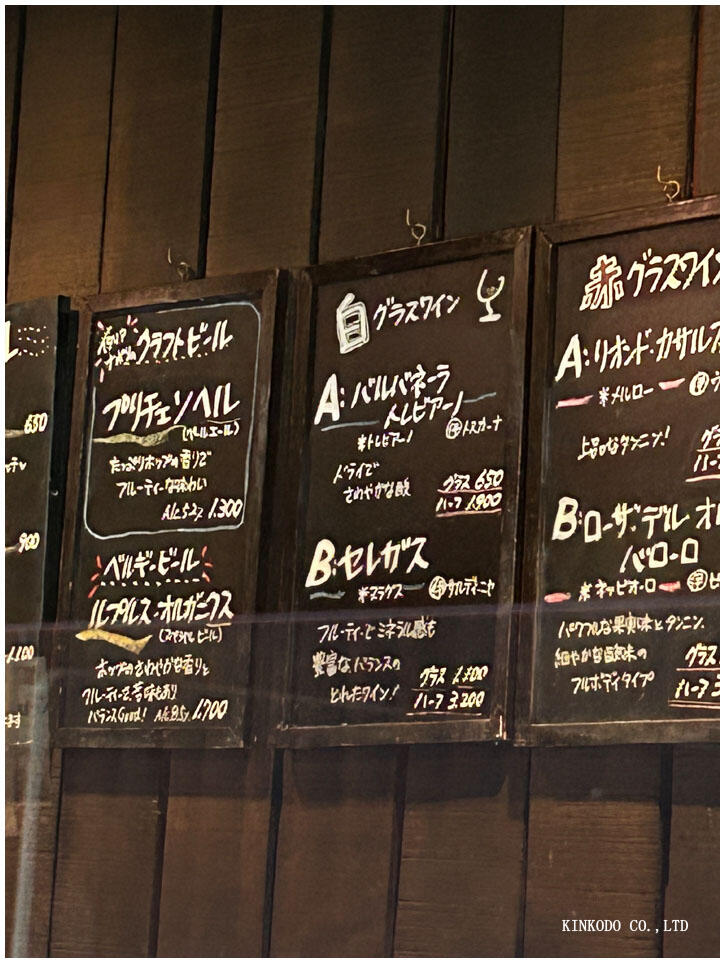 650
900
1,100
ます
クラフトビール
プリチェンヘル
(ペールエール)
たっぷりホップの香りで
フルーティーな味わい
Alc 5.2% 1,300
ベルギービール
ルプルス・オルガニクス
(スペシャルビール)
ホップのさわやかな香りと
フルーティーで、苦味もあり
バランスGood! Alc 8.5% 1,700
白グラスワイン
A:バルバネーラ
トレビアーノ
※トレビアーノ
トスカーナ
ドライで
さわやかな酸
グラス 650
ハーフ 1,900
B:セレガス
サルディーニャ
フルーティーでミネラル感も
豊富なバランスの
とれたワイン!
グラス 1,300
ハーフ 3,200
赤グラスワイン
A:リオンド・カサル
※メルロー
上品なタンニン!
B:ローザ・デル・オ
バローロ
※ネッビオーロ
パワフルな果実味とタンニン、
細やかな酸味の
フルボディタイプ
グラス
ハーフ
KINKODO CO.,LTD